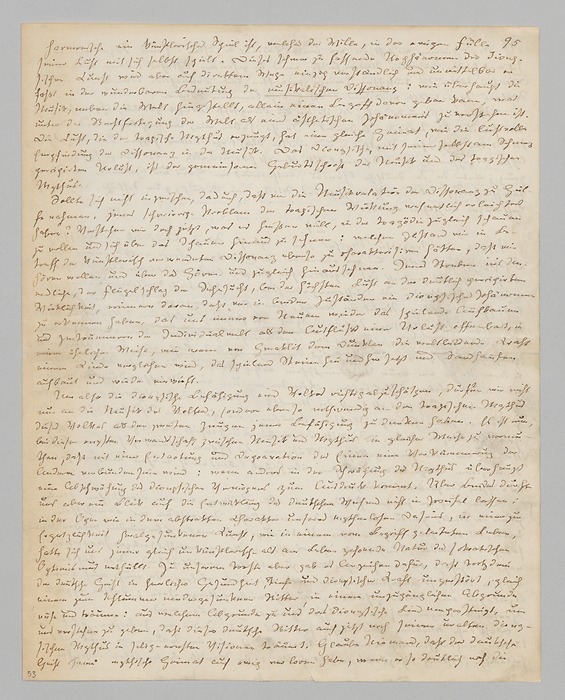 harmonische ein künstlerisches Spiel ist, welches der Wille, in der ewigen Fülle 95
seiner Lust mit sich selbst spielt. Dieses schwer zu fassende Urphänomen der diony-
sischen Kunst wird aber auf direktem Wege einzig verständlich und unmittelbar er-
fasst in der wunderbaren Bedeutung der musikalischen Dissonanz: wie überhaupt die
Musik, neben die Welt hingestellt, allein einen Begriff davon geben kann, was
unter der Rechtfertigung der Welt als eines aesthetischen Phänomens zu verstehen ist.
Die Lust, die der tragische Mythus erzeugt, hat eine gleiche Heimat, wie die lustvolle
Empfindung der Dissonanz in der Musik. Das Dionysische, mit seiner selbst am Schmerz
percipirten Urlust, ist der gemeinsame Geburtsschooss der Musik und des tragischen
Mythus.
Sollte sich nicht inzwischen, dadurch, dass wir die Musikrelation der Dissonanz zu Hül-
fe nahmen, jenes schwierige Problem der tragischen Wirkung wesentlich erleichtert
haben? Verstehen wir doch jetzt, was es heissen will, in der Tragödie zugleich schauen
zu wollen und sich über das Schauen hinaus zu sehnen: welchen Zustand wir in Be-
treff der künstlerisch verwendeten Dissonanz ebenso zu charakterisiren hätten, dass wir
hören wollen und über das Hören uns zugleich hinaussehnen. Jenes Streben ins Un-
endliche, der Flügelschlag der Sehnsucht, bei der höchsten Lust an der deutlich percipirten
Wirklichkeit, erinnern daran, dass wir in beiden Zuständen ein dionysisches Phänomen
zu erkennen haben, das uns immer von Neuem wieder das spielende Aufbauen
und Zertrümmern der Individualwelt als den Ausfluss einer Urlust offenbart, in
einer ähnlichen Weise, wie wenn von Heraklit dem Dunklen die weltbildende Kraft
einem Kinde verglichen wird, das spielend Steine hin und her setzt und Sandhaufen
aufbaut und wieder einwirft.
Um also die dionysische Befähigung eines Volkes richtig abzuschätzen, dürfen wir nicht
nur an die Musik des Volkes, sondern ebenso nothwendig an den tragischen Mythus
dieses Volkes als den zweiten Zeugen jener Befähigung zu denken haben. Es ist nun,
bei dieser engsten Verwandtschaft zwischen Musik und Mythus in gleicher Weise zu vermu-
then, dass mit einer Entartung und Depravation des Einen eine Verkümmerung der
Anderen verbunden sein wird: wenn anders in der Schwächung des Mythus überhaupt
eine Abschwächung des dionysischen Vermögens zum Ausdruck kommt. Über Beides dürfte
uns aber ein Blick auf die Entwicklung des deutschen Wesens nicht in Zweifel lassen:
in der Oper wie in dem abstrakten Charakter unseres mythenlosen Daseins, in einer zur
Ergetzlichkeit herabgesunkenen Kunst, wie in einem vom Begriff geleiteten Leben,
hatte sich uns jene gleich unkünstlerische, als am Leben zehrende Natur des sokratischen
Optimismus enthüllt. Zu unserem Troste aber gab es Anzeichen dafür, dass trotzdem
der deutsche Geist in herrlicher Gesundheit, Tiefe und dionysischer Kraft unzerstört, gleich
einem zum Schlummer niedergesunknen Ritter, in einem unzugänglichen Abgrunde
ruhe und träume: aus welchem Abgrunde zu uns das dionysische Lied emporsteigt, um
uns zu verstehen zu geben, dass dieser deutsche Ritter auch jetzt noch seinen uralten diony-
sischen Mythus in selig-ernsten Visionen träumt. Glaube Niemand, dass der deutsche
Geist seine mythische Heimat auf ewig verloren habe, wenn er so deutlich noch die
53